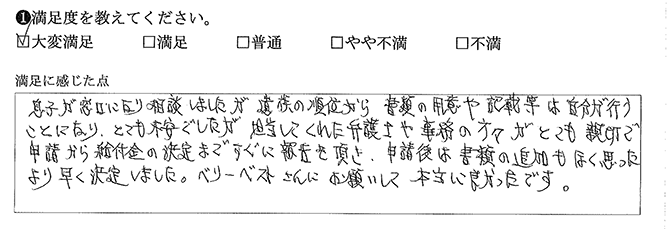 ❶満足度を教えてください。
☑大変満足 □満足 □普通 □やや不満 □不満
満足に感じた点
息子が窓口になり相談しましたが遺族の順位から書類の用意や記載等は自分が行う
ことになり、とても不安でしたが担当してくれた弁護士や事務の方々がとても親切で
申請から給付金の決定まですぐに報告を頂き、申請後は書類の追加もなく思った
より早く決定しました。ベリーベストさんにお願いして本当に良かったです。